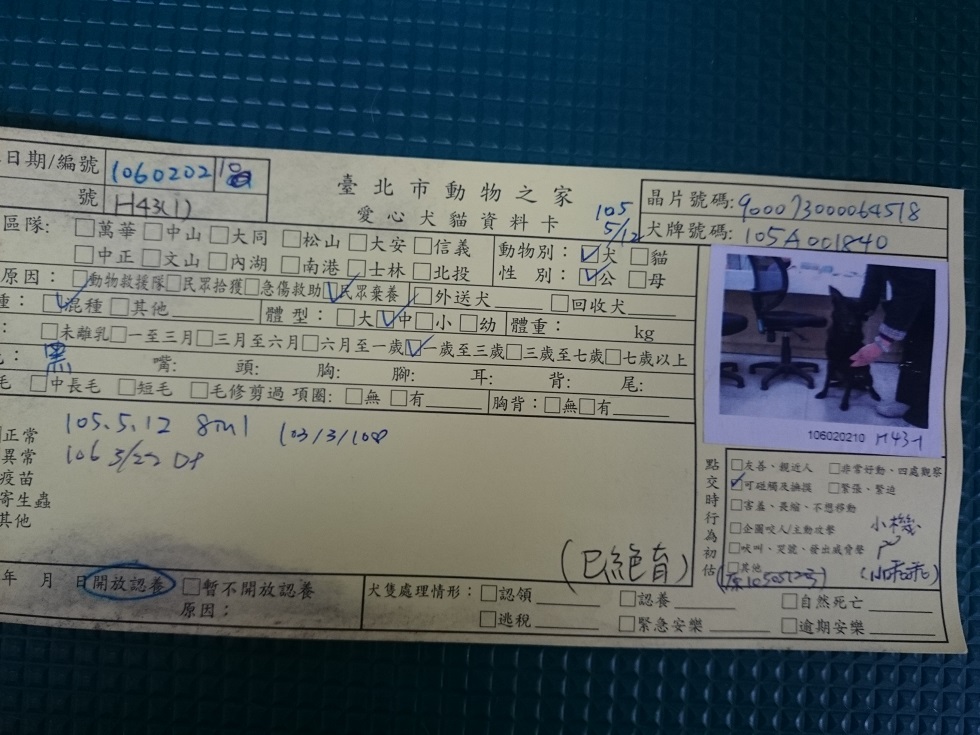 日期/編號 1060202
號 H43(1)
臺北市動物之家
愛心犬貓資料卡
105
5/12
晶片號碼: 900073000064518
犬牌號碼: 105A001840
區隊: □萬華 □中山 □大同 □松山 □大安 □信義
□中正 □文山 □內湖 □南港 □士林 □北投
動物別: ☑犬 □貓
性 別: ☑公 □母
原因: □動物救援隊 □民眾拾獲 □急傷救助 ☑民眾棄養 □外送犬 □回收犬
種: ☑混種 □其他 體 型: □大 ☑中 □小 □幼 體重: kg
: □未離乳 □一至三月 □三月至六月 □六月至一歲 ☑一歲至三歲 □三歲至七歲 □七歲以上
: 黑 嘴: 頭: 胸: 腳: 耳: 背: 尾:
毛 □中長毛 □短毛 □毛修剪過 項圈: □無 □有 胸背: □無 □有
106020210 H43-1
正常
異常
疫苗
寄生蟲
其他
105.5.12 8in1
106 3/22 D8
(已絕育)
點交時行為初估
□友善、親近人 □非常好動、四處觀察
☑可碰觸及撫摸 □緊張、緊迫
□害羞、畏縮、不想移動
□企圖咬人/主動攻擊
□吠叫、哭號、發出威脅聲
□其他
小機
(小乖乖)
年 月 日 開放認養 □暫不開放認養
原因:
犬隻處理情形: □認領 □認養 □自然死亡
□逃稅 □緊急安樂 □逾期安樂